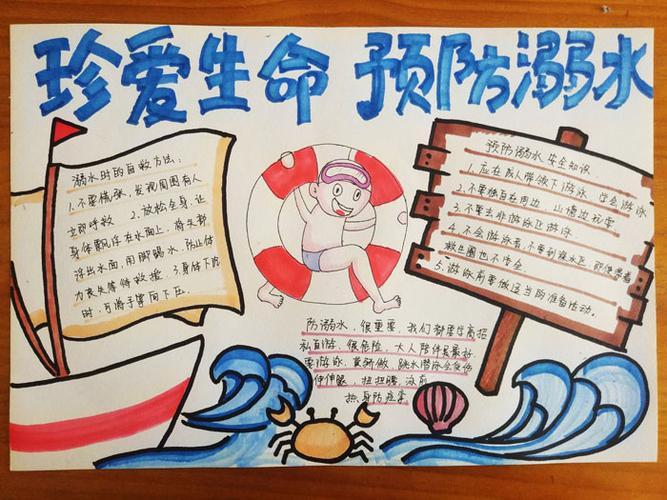 珍爱生命 预防溺水
溺水时的自救方法:
1.不要慌张,发现周围有人
立即呼救 2.放松全身,让
身体飘浮在水面上,将头部
浮出水面,用脚踢水,防止体
力丧失等待救援 3.身体下沉
时,可将手掌向下压.
预防溺水安全知识
1.应在成人带领下游泳 学会游泳
2.不要独自在河边 山塘边玩耍
3.不要去非游泳区游泳
4.不会游泳者,不要到深水区,即使带着
救生圈也不安全
5.游泳前要做适当的准备活动.
防溺水,很重要,我们都要学高招
私自游,很危险,大人陪伴是最好
要游泳,莫骄傲,跳水潜泳会受伤
伸伸腿,扭扭腰,泳前
热身防痉挛